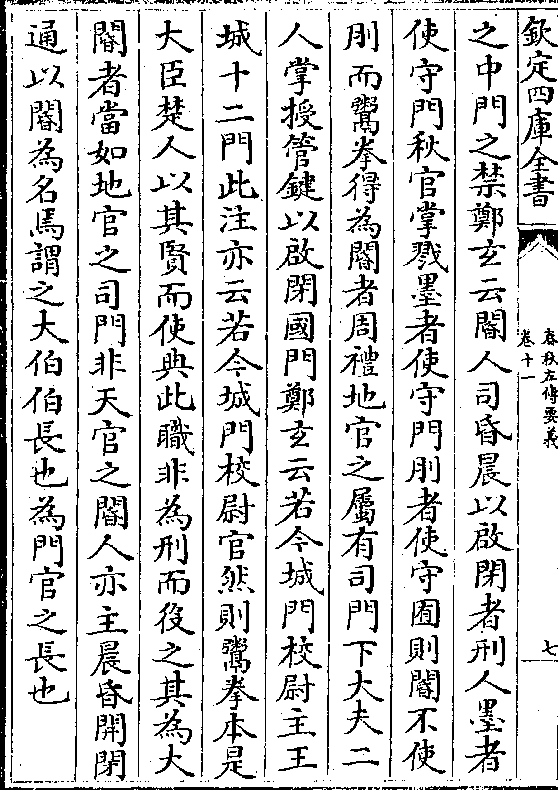 欽定四庫全書
春秋左傳要義
卷十一
七
之中門之禁鄭玄云閽人司昏晨以啟閉者刑人墨者
使守門秋官掌戮墨者使守門刖者使守囿則閽不使
刖而鬻拳得為閽者周禮地官之屬有司門下大夫二
人掌授管鍵以啟閉國門鄭玄云若今城門校尉主王
城十二門此注亦云若今城門校尉官然則鬻拳本是
大臣楚人以其賢而使典此職非為刑而役之其為大
閽者當如地官之司門非天官之閽人亦主晨昏開閉
通以閽為名焉謂之大伯伯長也為門官之長也